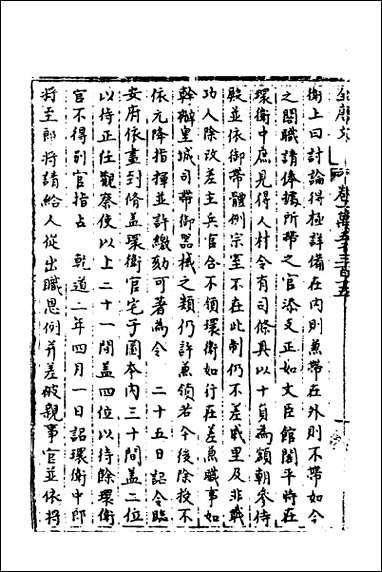 衛上曰討論得極詳備在内則兼帶在外則不帶如今
之閣職請俸據所帶之官添支正如文臣館閣平時在
環衛中庶見得人材令有司條具以十員為額朝參侍
殿並依御帶體例宗室不在此制仍不差戚里及非戰
功人除改差主兵官合不領環衛如行在差兼職事如
幹辦皇城司帶御器械之類仍許兼領若今後除授不
依元降指揮並許繳劾可著為令 二十五日記令臨
安府依畫到修蓋環衛官宅子圖本内三十間蓋二位
以待正任觀察使以上二十一間蓋四位以待餘環衛
官不得到官指占 乾道二年四月一日詔環衛中郎
將至郎將請給人從出職恩例并差破親事官並依將